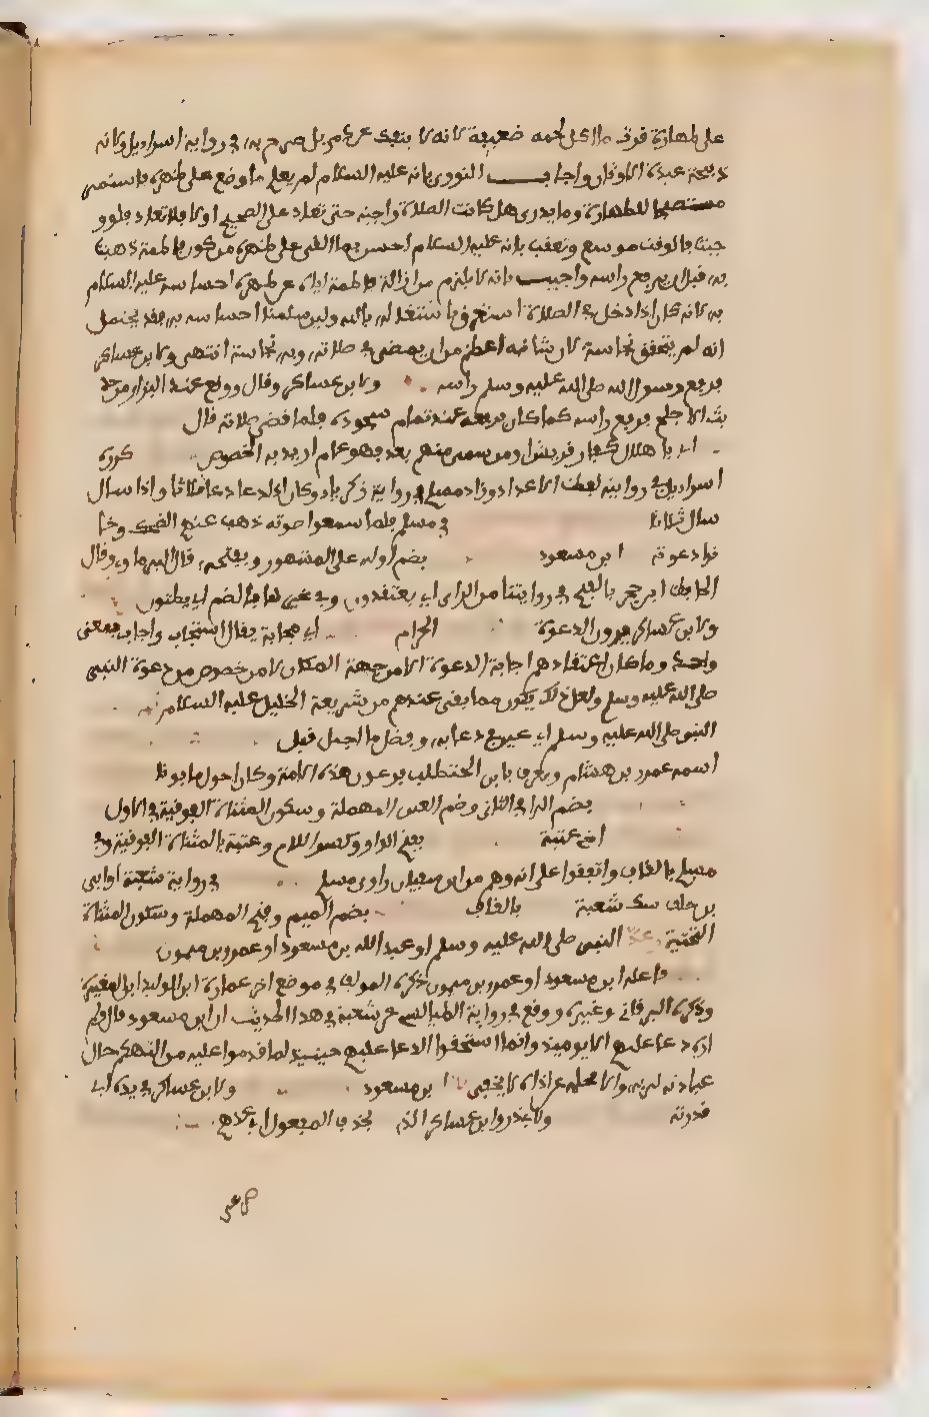 على طهارة فرث ما اكل لحمه ضعيفة لانه لا ينفك عن دم بل صرح به في رواية اسراءيل ولانه
ذبيحة عبدة الاوثان واجاب النووي بانه عليه السلام لم يعلم ما وضع على ظهره فاستمر
مستصحبا للطهارة وما يدرى هل كانت الصلاة واجبة حتى تعاد على الصحيح او لا فلا تعاد ولو و
جبت فالوقت موسع وتعقب بانه عليه السلام احس بما القي على ظهره من كون فاطمة ذهبت
به قبل ان يرفع راسه واجيب بانه لا يلزم من ازالة فاطمة اياه عن ظهره احساسه عليه السلام
به لانه كان اذا دخل في الصلاة استغرق باشتغاله بالله ولين سلمنا احساسه به فقد يحتمل
انه لم يتحقق نجاسته لان شانه اعظم من ان يمضي في صلاته وبه نجاسة انتهى ولابن عساكر
فرفع رسول الله صلى الله عليه وسلم راسه ولابن عساكر وقال ووقع عند البزار من حد
يث الاجلح فرفع راسه كما كان يرفعه عند تمام سجوده فلما قضى صلاته قال
اي باهلاك كفار قريش او من سمى منهم بعد فهو عام اريد به الخصوص كرره
اسراءيل في روايته لفظا لا عددا وزاد مسلم في رواية زكرياء وكان اذا دعا دعا ثلاثا واذا سال
سال ثلاثا في مسلم فلما سمعوا صوته ذهب عنهم الضحك وخا
فوا دعوته ابن مسعود بضم اوله على المشهور وبفتحه قاله البرماوي وقال
الحافظ ابن حجر بالفتح في روايتنا من الراى اي يعتقدون وفي غيرها بالضم اي يظنون
ولابن عساكر يرون الدعوة الحرام اي مجابة يقال استجاب واجاب بمعنى
واحد وما كان اعتقادهم اجابة الدعوة الا من جهة المكان لا من خصوص من دعوة النبي
صلى الله عليه وسلم ولعل ذلك يكون مما بقي عندهم من شريعة الخليل عليه السلام
النبي صلى الله عليه وسلم اي عين في دعايه وفصل ما اجمل قبل
اسمه عمرو بن هشام ويعرف بابن الحنظلية فرعون هذه الامة وكان احول مابونا
بضم الراء في الثاني وضم العين المهملة وسكون المثناة الفوقية في الاول
اخى عتبة بفتح الواو وكسر اللام وعتبة بالمثناة الفوقية وفي
مسلم بالقاف واتفقوا على انه وهم من ابن سفيان راوي مسلم في رواية شعبة او ابي
بن خلف شك شعبة بالقاف بضم الميم وفتح المهملة وسكون المثناة
التحتية وعدّ النبي صلى الله عليه وسلم او عبد الله بن مسعود او عمرو بن ميمون
فاعله ابن مسعود او عمرو بن ميمون ذكره المولف في موضع اخر عمارة ابن الوليد ابن المغيرة
وذكره البرقاني وغيره ووقع في رواية الطيالسي عن شعبة في هذا الحديث ان ابن مسعود قال لم
اره دعا عليهم الا يوميذ وانما استحقوا الدعا عليهم حينيذ لما قدموا عليه من التهكم حال
عبادته لربه والا فحلمه عن اذاه لا يخفى ابن مسعود ولابن عساكر في يده اي
قدرته ولابي ذر وابن عساكر الذي بحذف المفعول اي عدهم